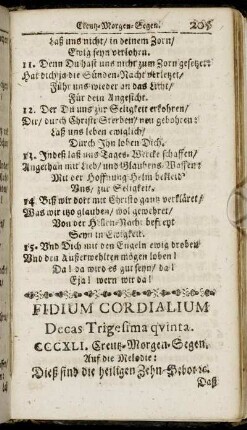 Creutz-Morgen-Segen. 205
Laß uns nicht / in deinem Zorn /
Ewig seyn verlohrn.
11. Denn Du hast uns nicht zum Zorn gesetzet:
Hat dich ja die Sünden-Nacht verletzet /
Führ uns wieder an das Licht /
Für dein Angesicht.
12. Der Du uns zur Seligkeit erkohren /
Dir / durch Christi Sterben / neu gebohren:
Laß uns leben ewiglich /
Durch Jhn loben Dich.
13. Indeß laß uns Tages-Wercke schaffen /
Angethan mit Lieb- und Glaubens-Waffen:
Mit der Hoffnung Helm bekleid'
Uns / zur Seligkeit.
14. Biß wir dort mit Christo gantz verkläret /
Was wir itzo glauben / wol gewehret /
Von der Höllen-Nacht befreyt
Seyn in Ewigkeit.
15. Und Dich mit den Engeln ewig droben
Und den Außerwehlten mögen loben!
Da! da wird es gut seyn / da!
Eja! wern wir da!
FIDIUM CORDIALIUM
Decas Trigesima qvinta.
CCCXLI. Creutz-Morgen-Segen.
Auf die Melodie:
Dieß sind die heiligen Zehn-Gebot ꝛc.
Daß